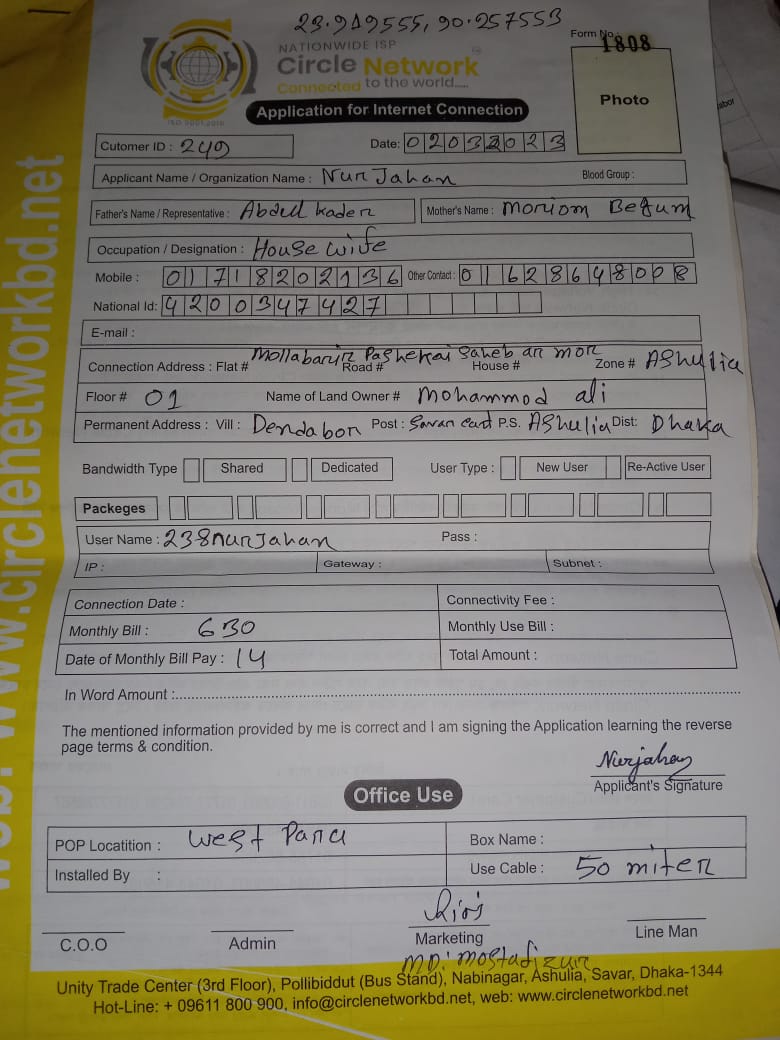 23.919555, 90.257553
Form No.:
1808
NATIONWIDE ISP
Circle Network
Connected to the world.....
ISO 9001:2015
Photo
Application for Internet Connection
Cutomer ID : 249
Date: 02032023
Applicant Name / Organization Name : Nur Jahan Blood Group :
Father's Name / Representative : Abdul kader
Mother's Name : moriom Begum
Occupation / Designation : House wife
Mobile : 01718202136 Other Contact : 01628648008
National Id: 4200347427
E-mail :
Mollabarir Pashekai saheb ar mor
Connection Address : Flat # Road # House # Zone # Ashulia
Floor # 01 Name of Land Owner # mohammod ali
Permanent Address : Vill : Dendabor Post : Savar cant P.S. Ashulia Dist: Dhaka
Bandwidth Type Shared Dedicated User Type : New User Re-Active User
Packeges
User Name : 238nurJahan Pass :
IP : Gateway : Subnet :
Connection Date : Connectivity Fee :
Monthly Bill : 630 Monthly Use Bill :
Date of Monthly Bill Pay : 14 Total Amount :
In Word Amount :
The mentioned information provided by me is correct and I am signing the Application learning the reverse
page terms & condition.
Nurjahan
Applicant's Signature
Office Use
POP Locatition : west Para Box Name :
Installed By : Use Cable : 50 miter
C.O.O Admin Marketing Line Man
MD: mostafizur
Unity Trade Center (3rd Floor), Pollibiddut (Bus Stand), Nabinagar, Ashulia, Savar, Dhaka-1344
Hot-Line: + 09611 800 900, info@circlenetworkbd.net, web: www.circlenetworkbd.net
web: www.circlenetworkbd.net